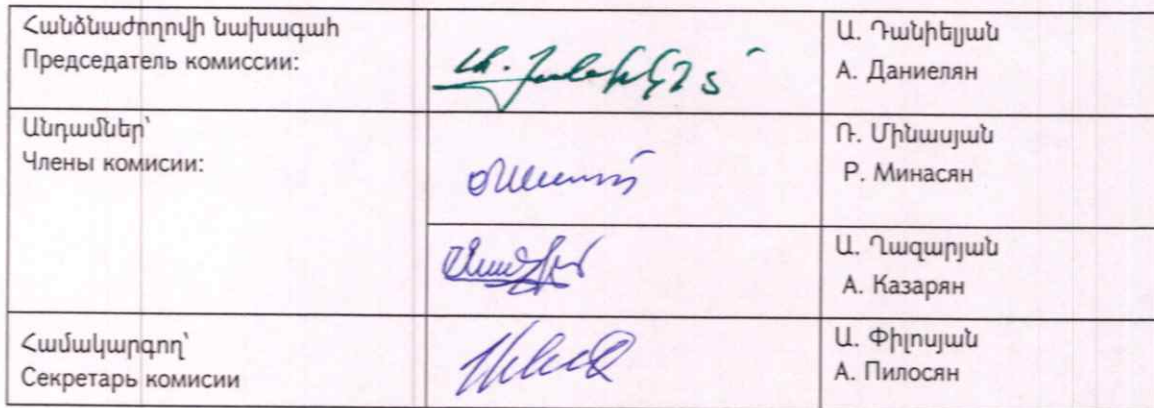 Հանձնաժողովի նախագահ
Председатель комиссии:
Ա. Դանիելյան
А. Даниелян
Անդամներ՝
Члены комисии:
Ռ. Մինասյան
Р. Минасян
Ա. Ղազարյան
А. Казарян
Համակարգող՝
Секретарь комисии
Ա. Փիլոսյան
А. Пилосян